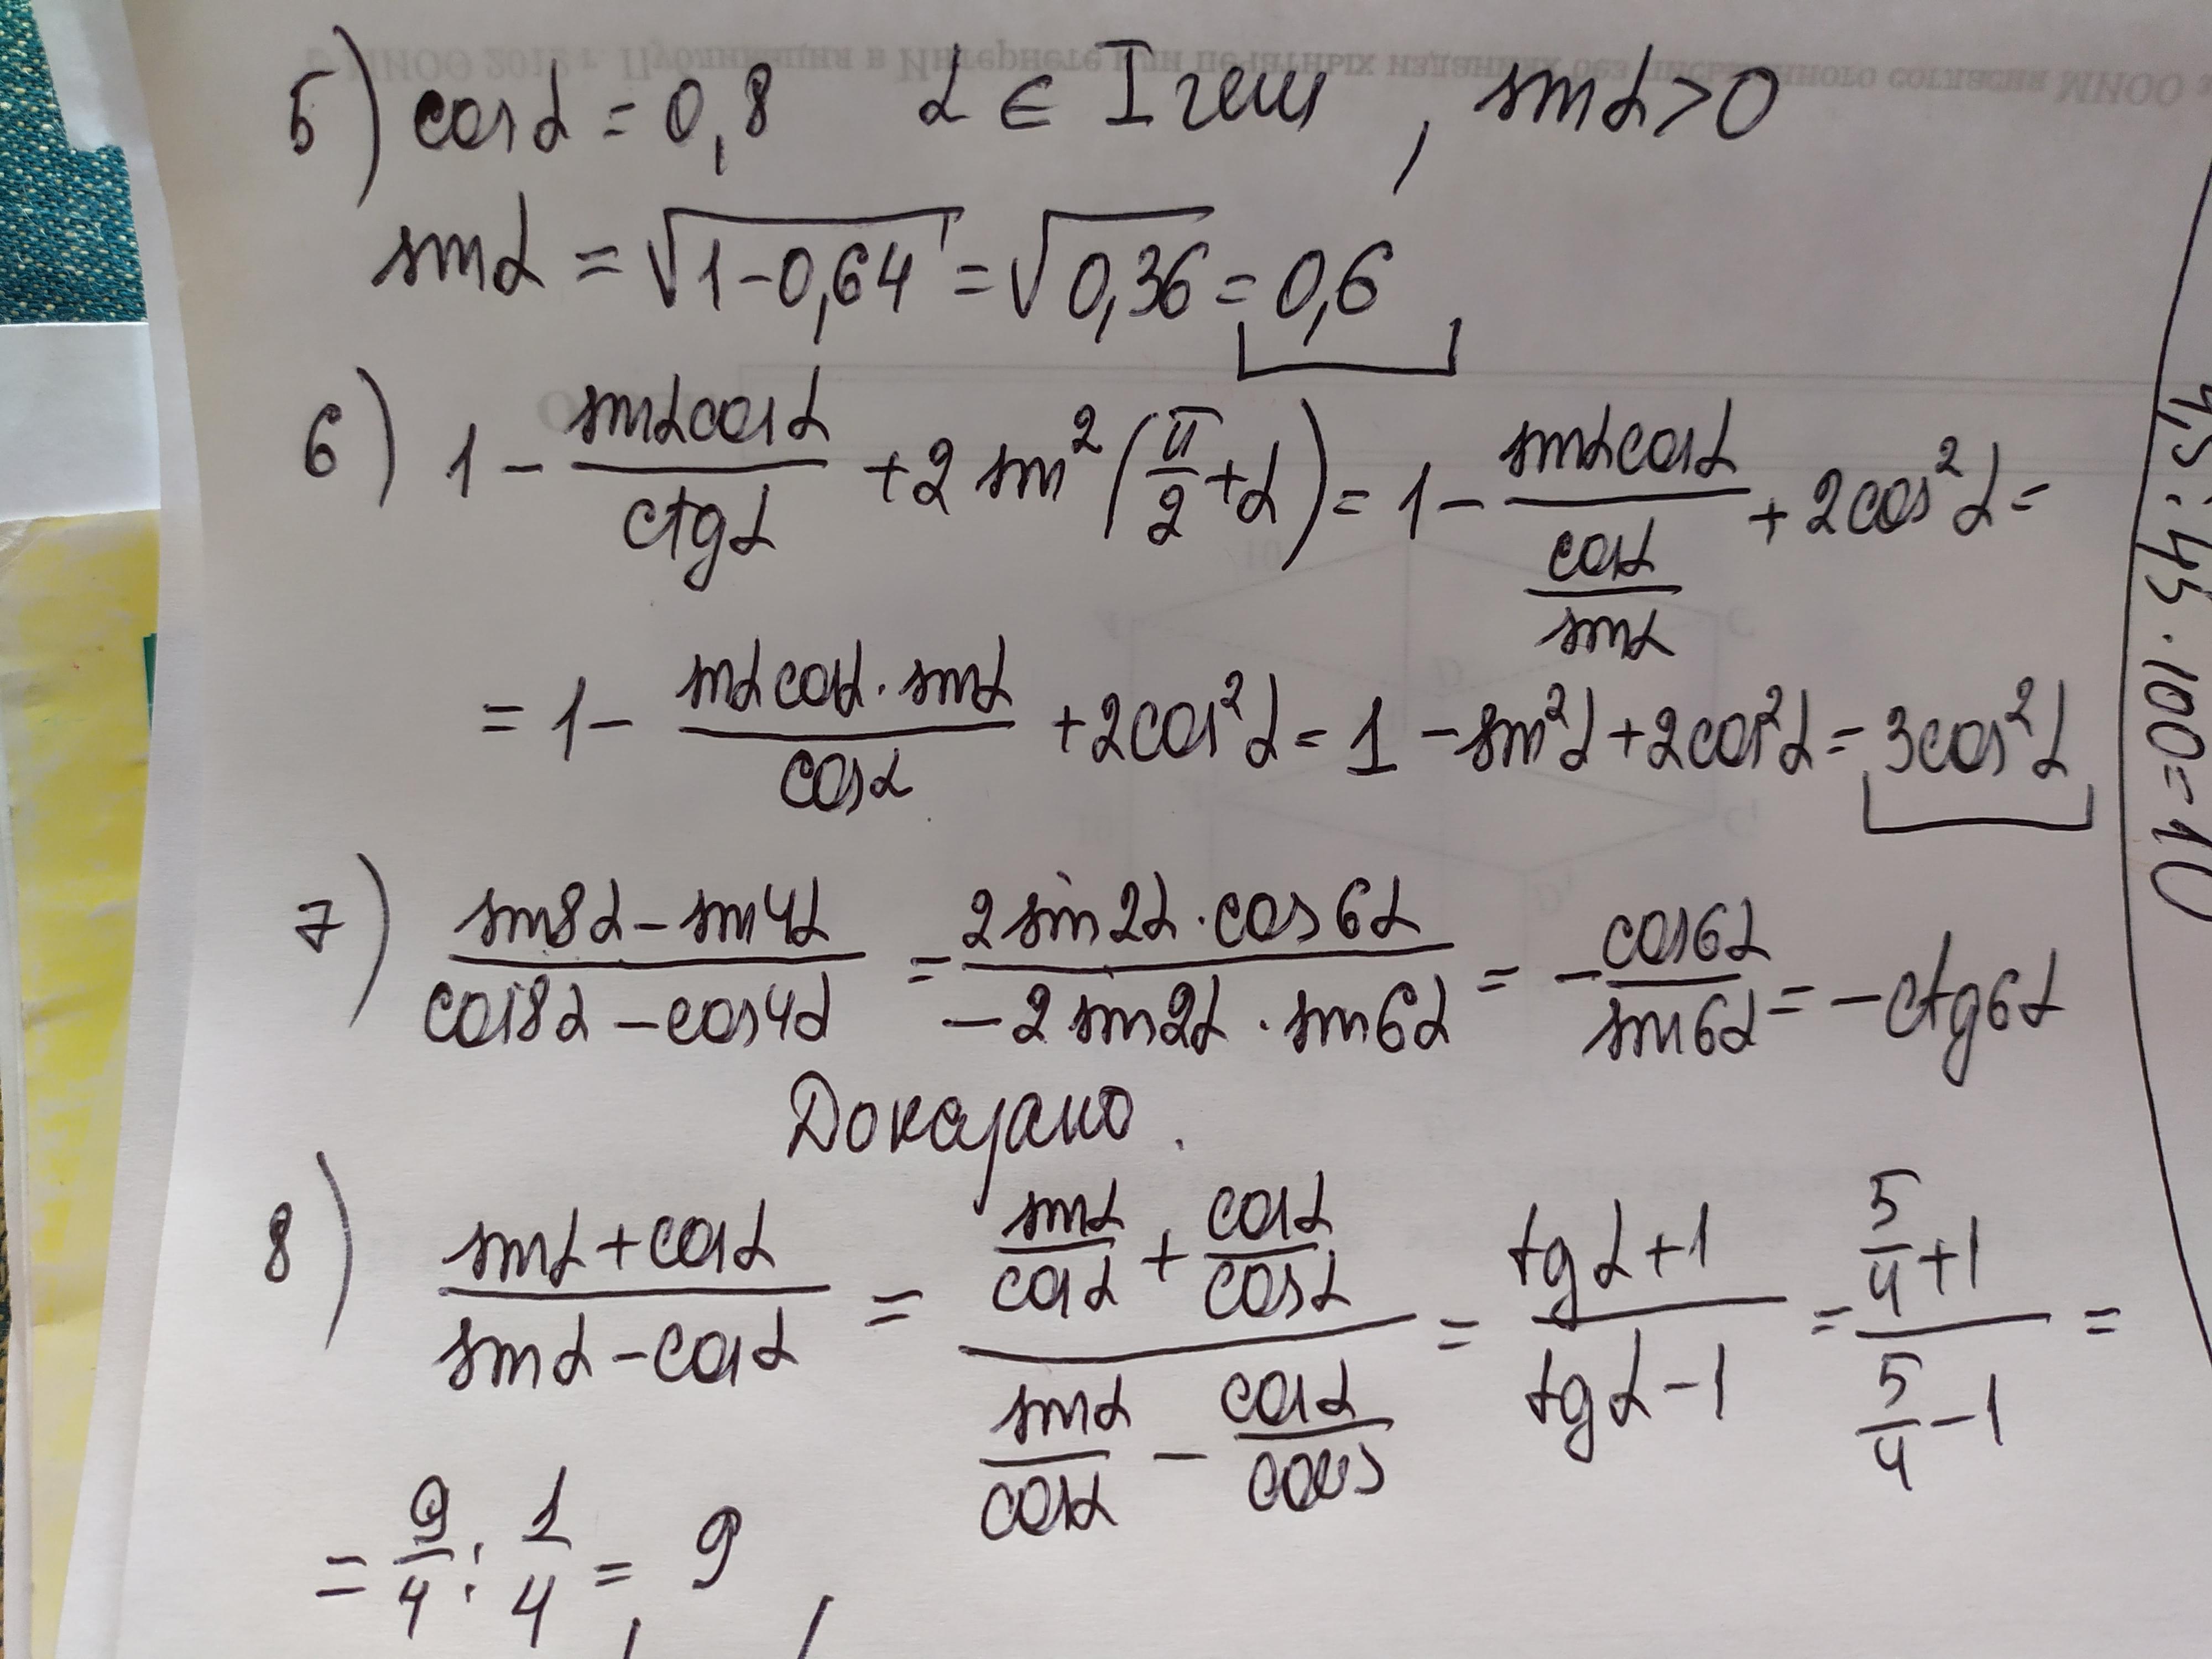 5) cosα = 0,8 α ∈ I чет, sinα > 0
sinα = √(1-0,64) = √(0,36) = 0,6
6) 1 - (sinα cosα)/(ctgα) + 2 sin²(π/2 + α) = 1 - (sinα cosα)/(cosα/sinα) + 2cos²α =
= 1 - (sinα cosα · sinα)/(cosα) + 2cos²α = 1 - sin²α + 2cos²α = 3cos²α
7) (sin8α - sin4α)/(cos8α - cos4α) = (2 sin2α · cos6α)/(-2 sin2α · sin6α) = - cos6α/sin6α = - ctg6α
Доказано.
8) (sinα + cosα)/(sinα - cosα) = (sinα/cosα + cosα/cosα)/(sinα/cosα - cosα/cosα) = (tgα + 1)/(tgα - 1) = (5/4 + 1)/(5/4 - 1) =
= 9/4 : 1/4 = 9
4,5 : 45 · 100 = 10